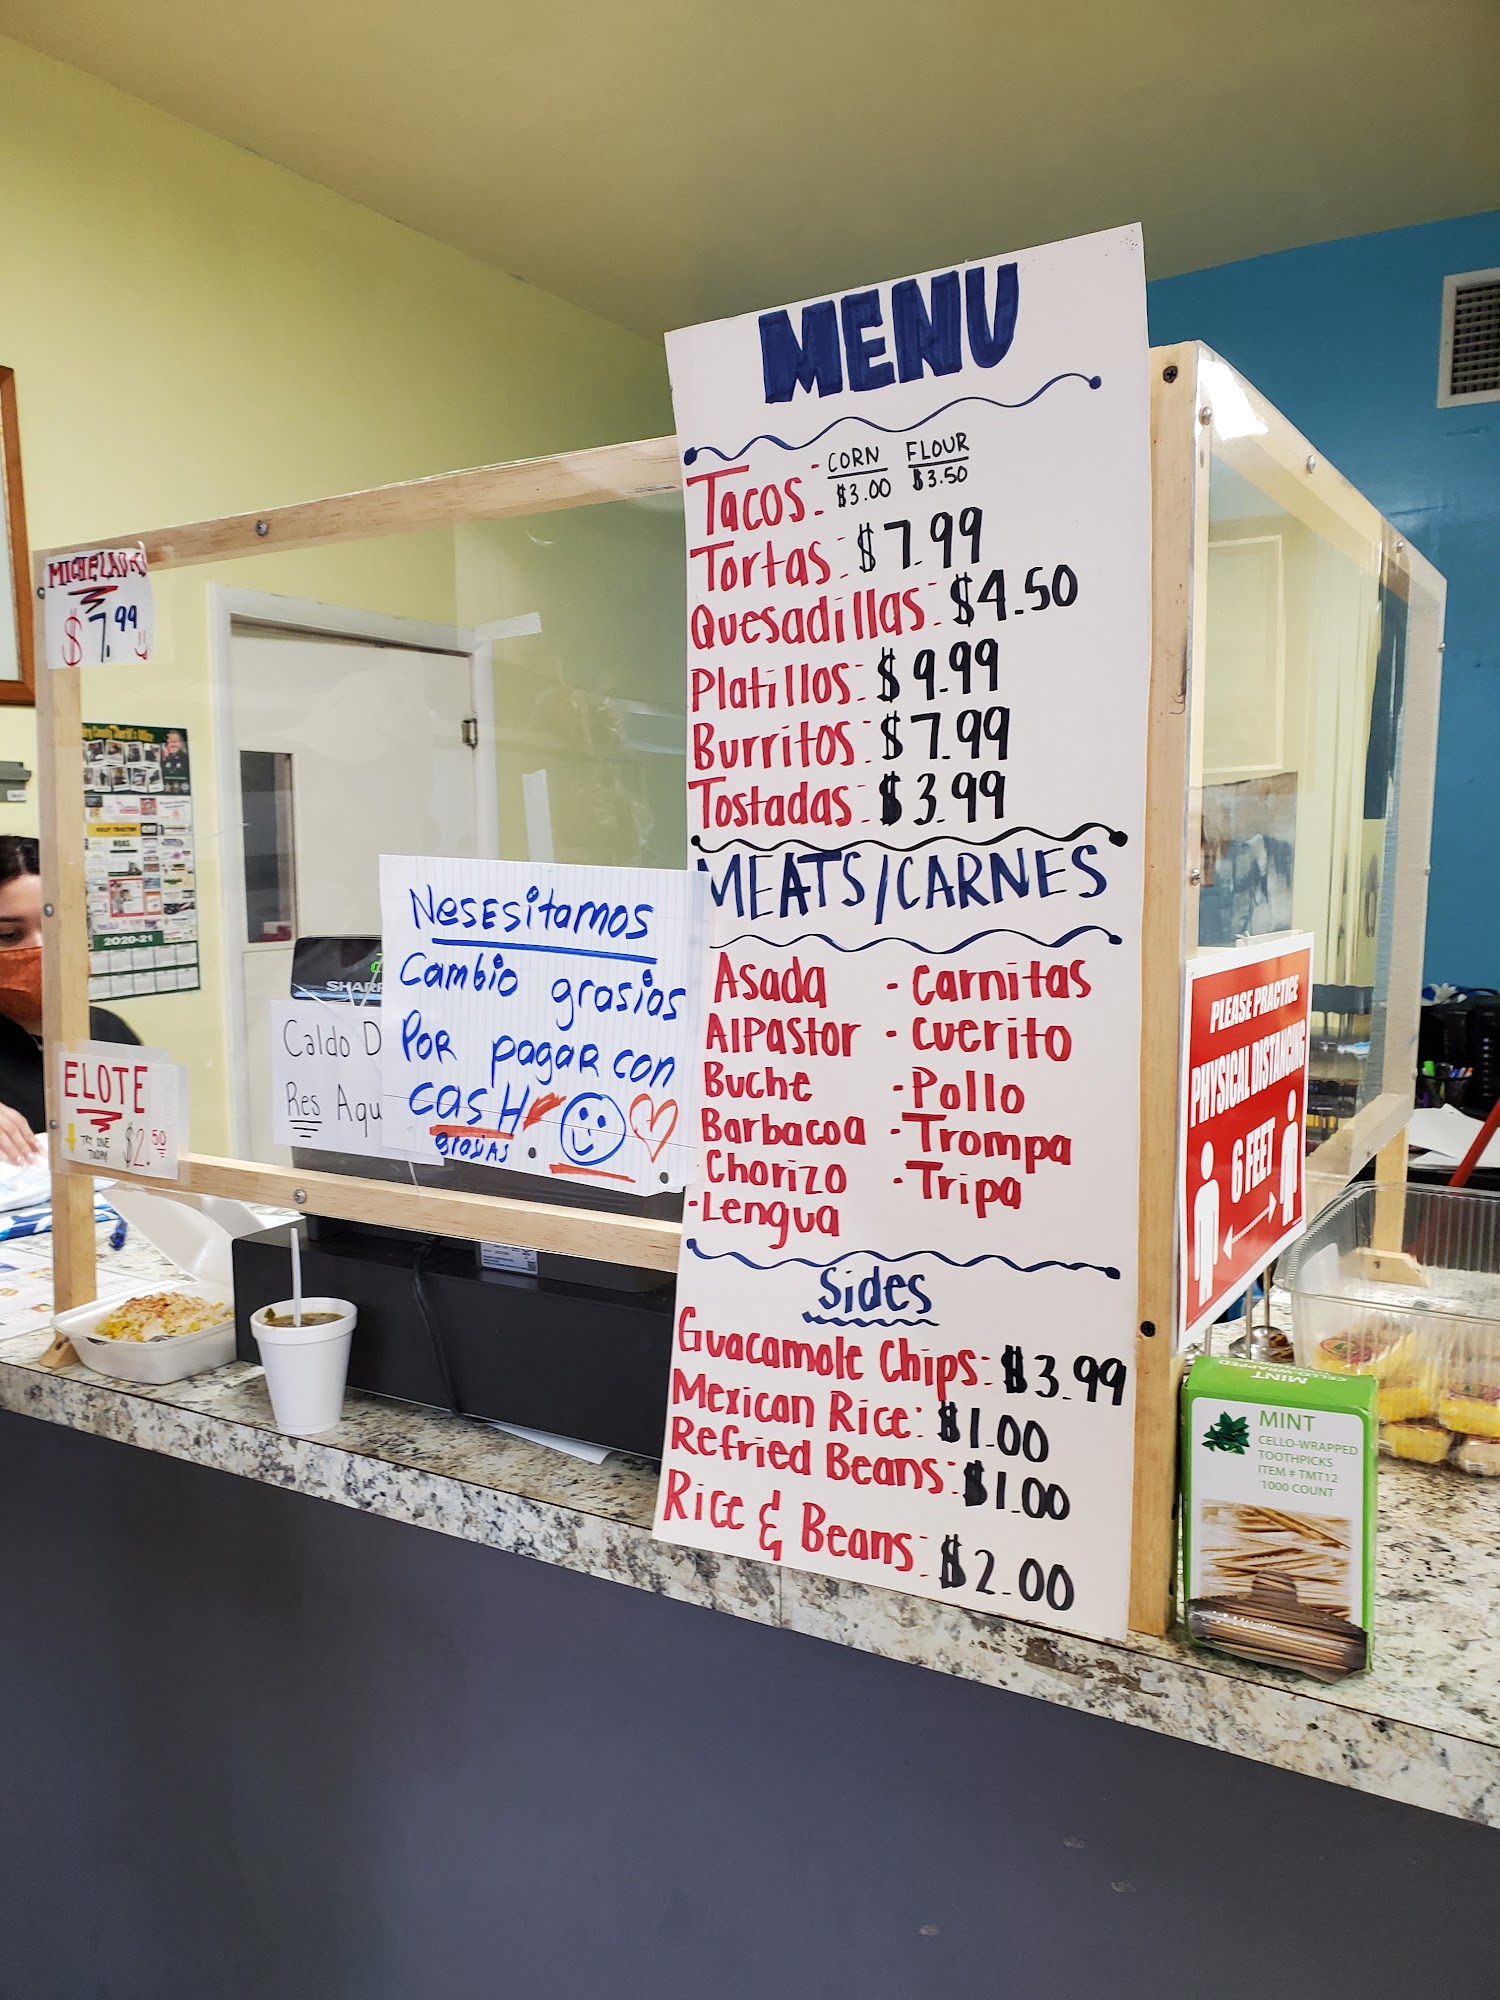 MENU
Tacos:
CORN FLOUR
$3.00 $3.50
Tortas: $7.99
Quesadillas: $4.50
Platillos: $9.99
Burritos: $7.99
Tostadas: $3.99
MEATS/CARNES
Asada - Carnitas
AlPastor - Cuerito
Buche - Pollo
Barbacoa - Trompa
Chorizo - Tripa
- Lengua
Sides
Guacamole Chips: $3.99
Mexican Rice: $1.00
Refried Beans: $1.00
Rice & Beans: $2.00
MICHELADAS
$7.99
2020-21
ELOTE
TRY ONE
TODAY
$2.50
SHARP
Caldo D
Res Aqu
NeSESitamos
Cambio grasias
POR pagar con
casH
grasias
PLEASE PRACTICE
PHYSICAL DISTANCING
6 FEET
MINT
MINT
CELLO-WRAPPED
TOOTHPICKS
ITEM # TMT12
1000 COUNT